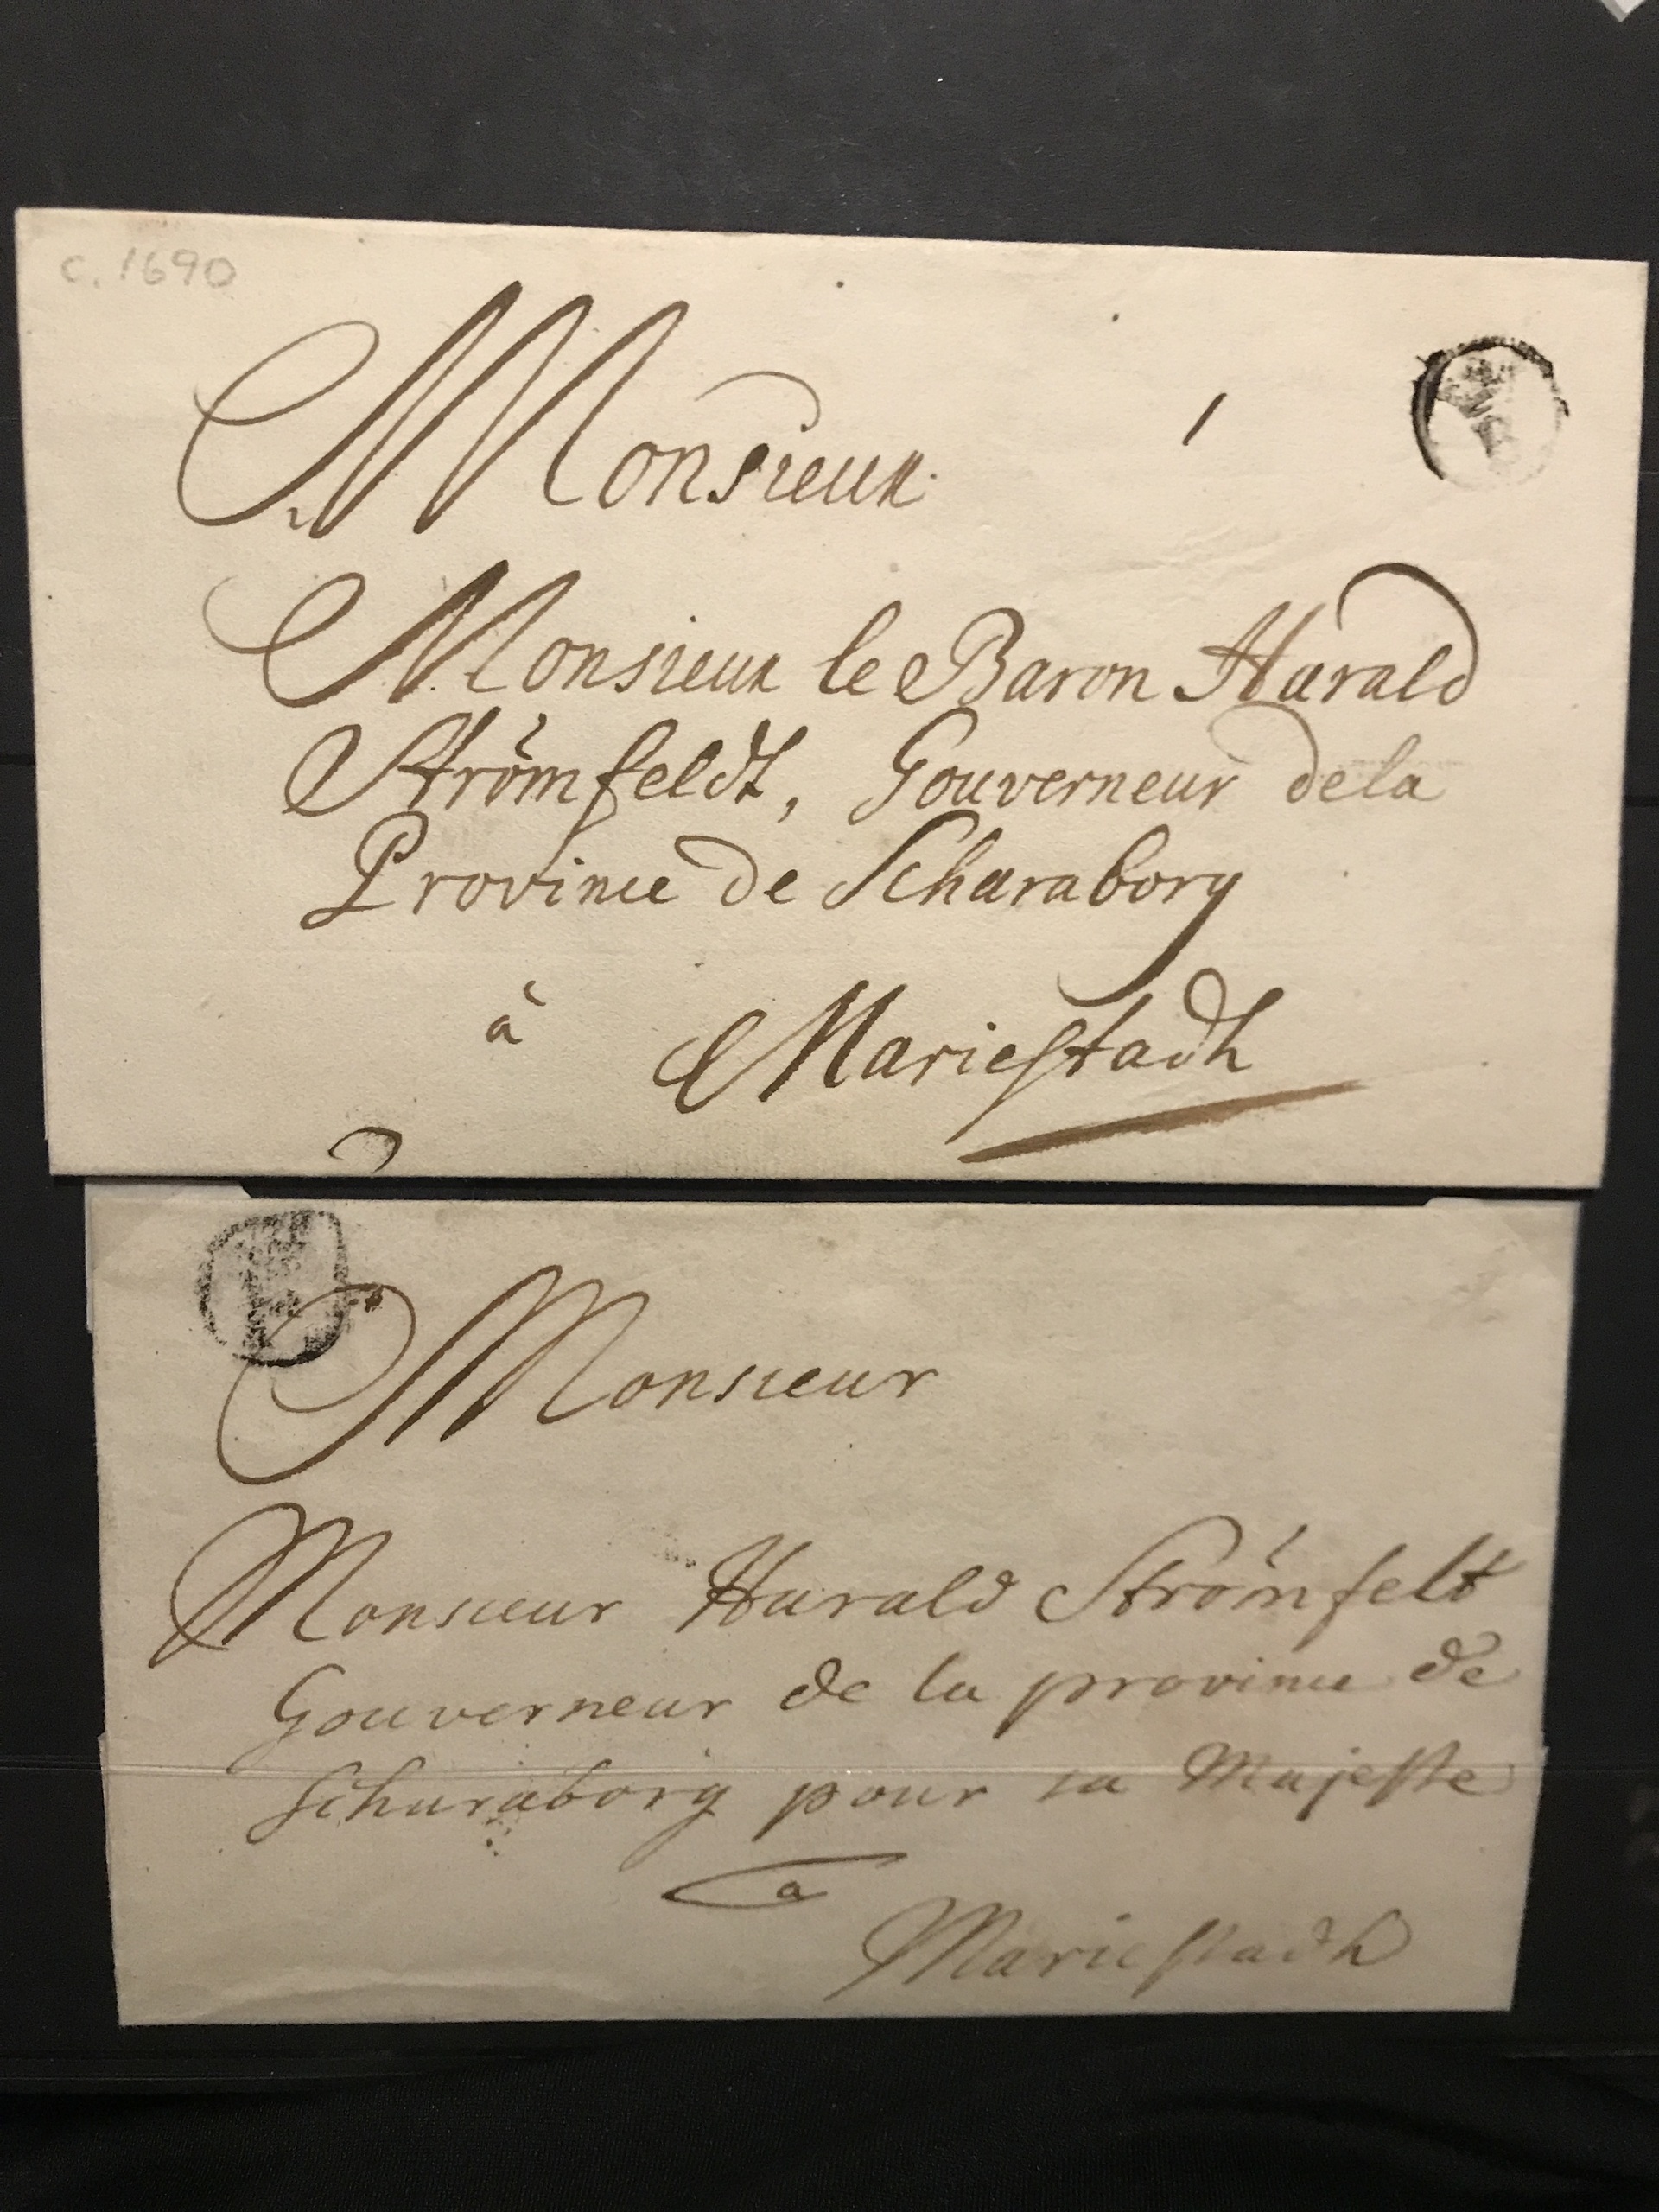 c. 1690
Monsieur
Monsieur le Baron Harald
Strömfeldt, Gouverneur de la
Province de Scharaborg
à Mariestadh
Monsieur
Monsieur Harald Strömfelt
Gouverneur de la province de
Scharaborg pour sa Majeste
a
Mariestadh